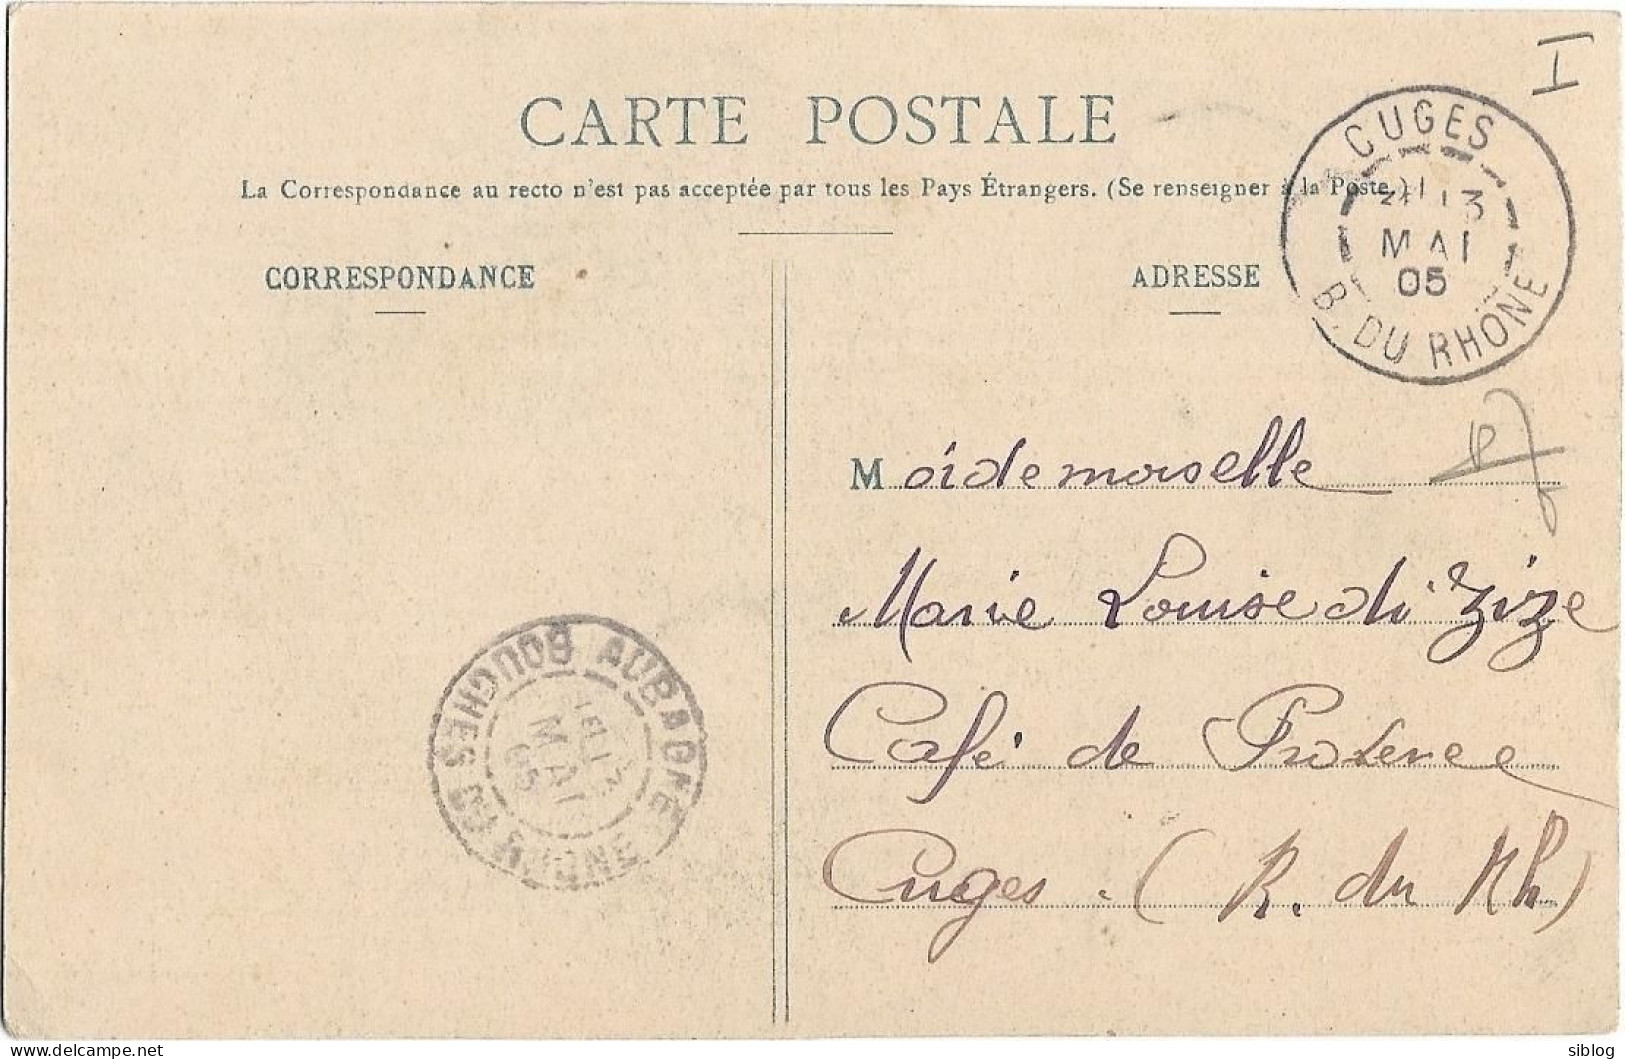 I
CARTE POSTALE
La Correspondance au recto n'est pas acceptée par tous les Pays Étrangers. (Se renseigner à la Poste.)
CORRESPONDANCE
ADRESSE
CUGES
13
MAI
05
B. DU RHÔNE
Moidemoiselle
Marie Louise di Zize
Café de Provence
Cuges. (B. du Rh)
AUBAGNE
MAI
05
BOUCHES DU RHONE
delcampe.net
siblog